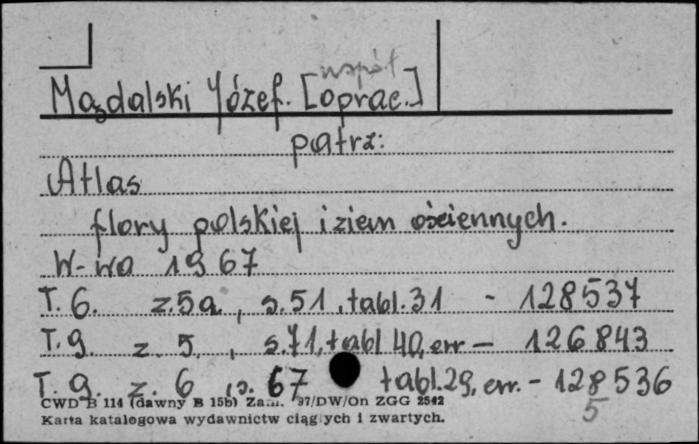 współ
Mądalski Józef. [oprac.]
patrz:
Atlas
flory polskiej i ziem ościennych.
W-wa 1967
T. 6. z.5a, s.51, tabl.31 - 128537
T. 9. z. 5, s.71, tabl 40, err - 126843
T. 9. z. 6, s. 67 tabl.29, err. - 128536
5
CWD B 114 (dawny B 15b) Zam. 97/DW/On ZGG 2542
Karta katalogowa wydawnictw ciągłych i zwartych.